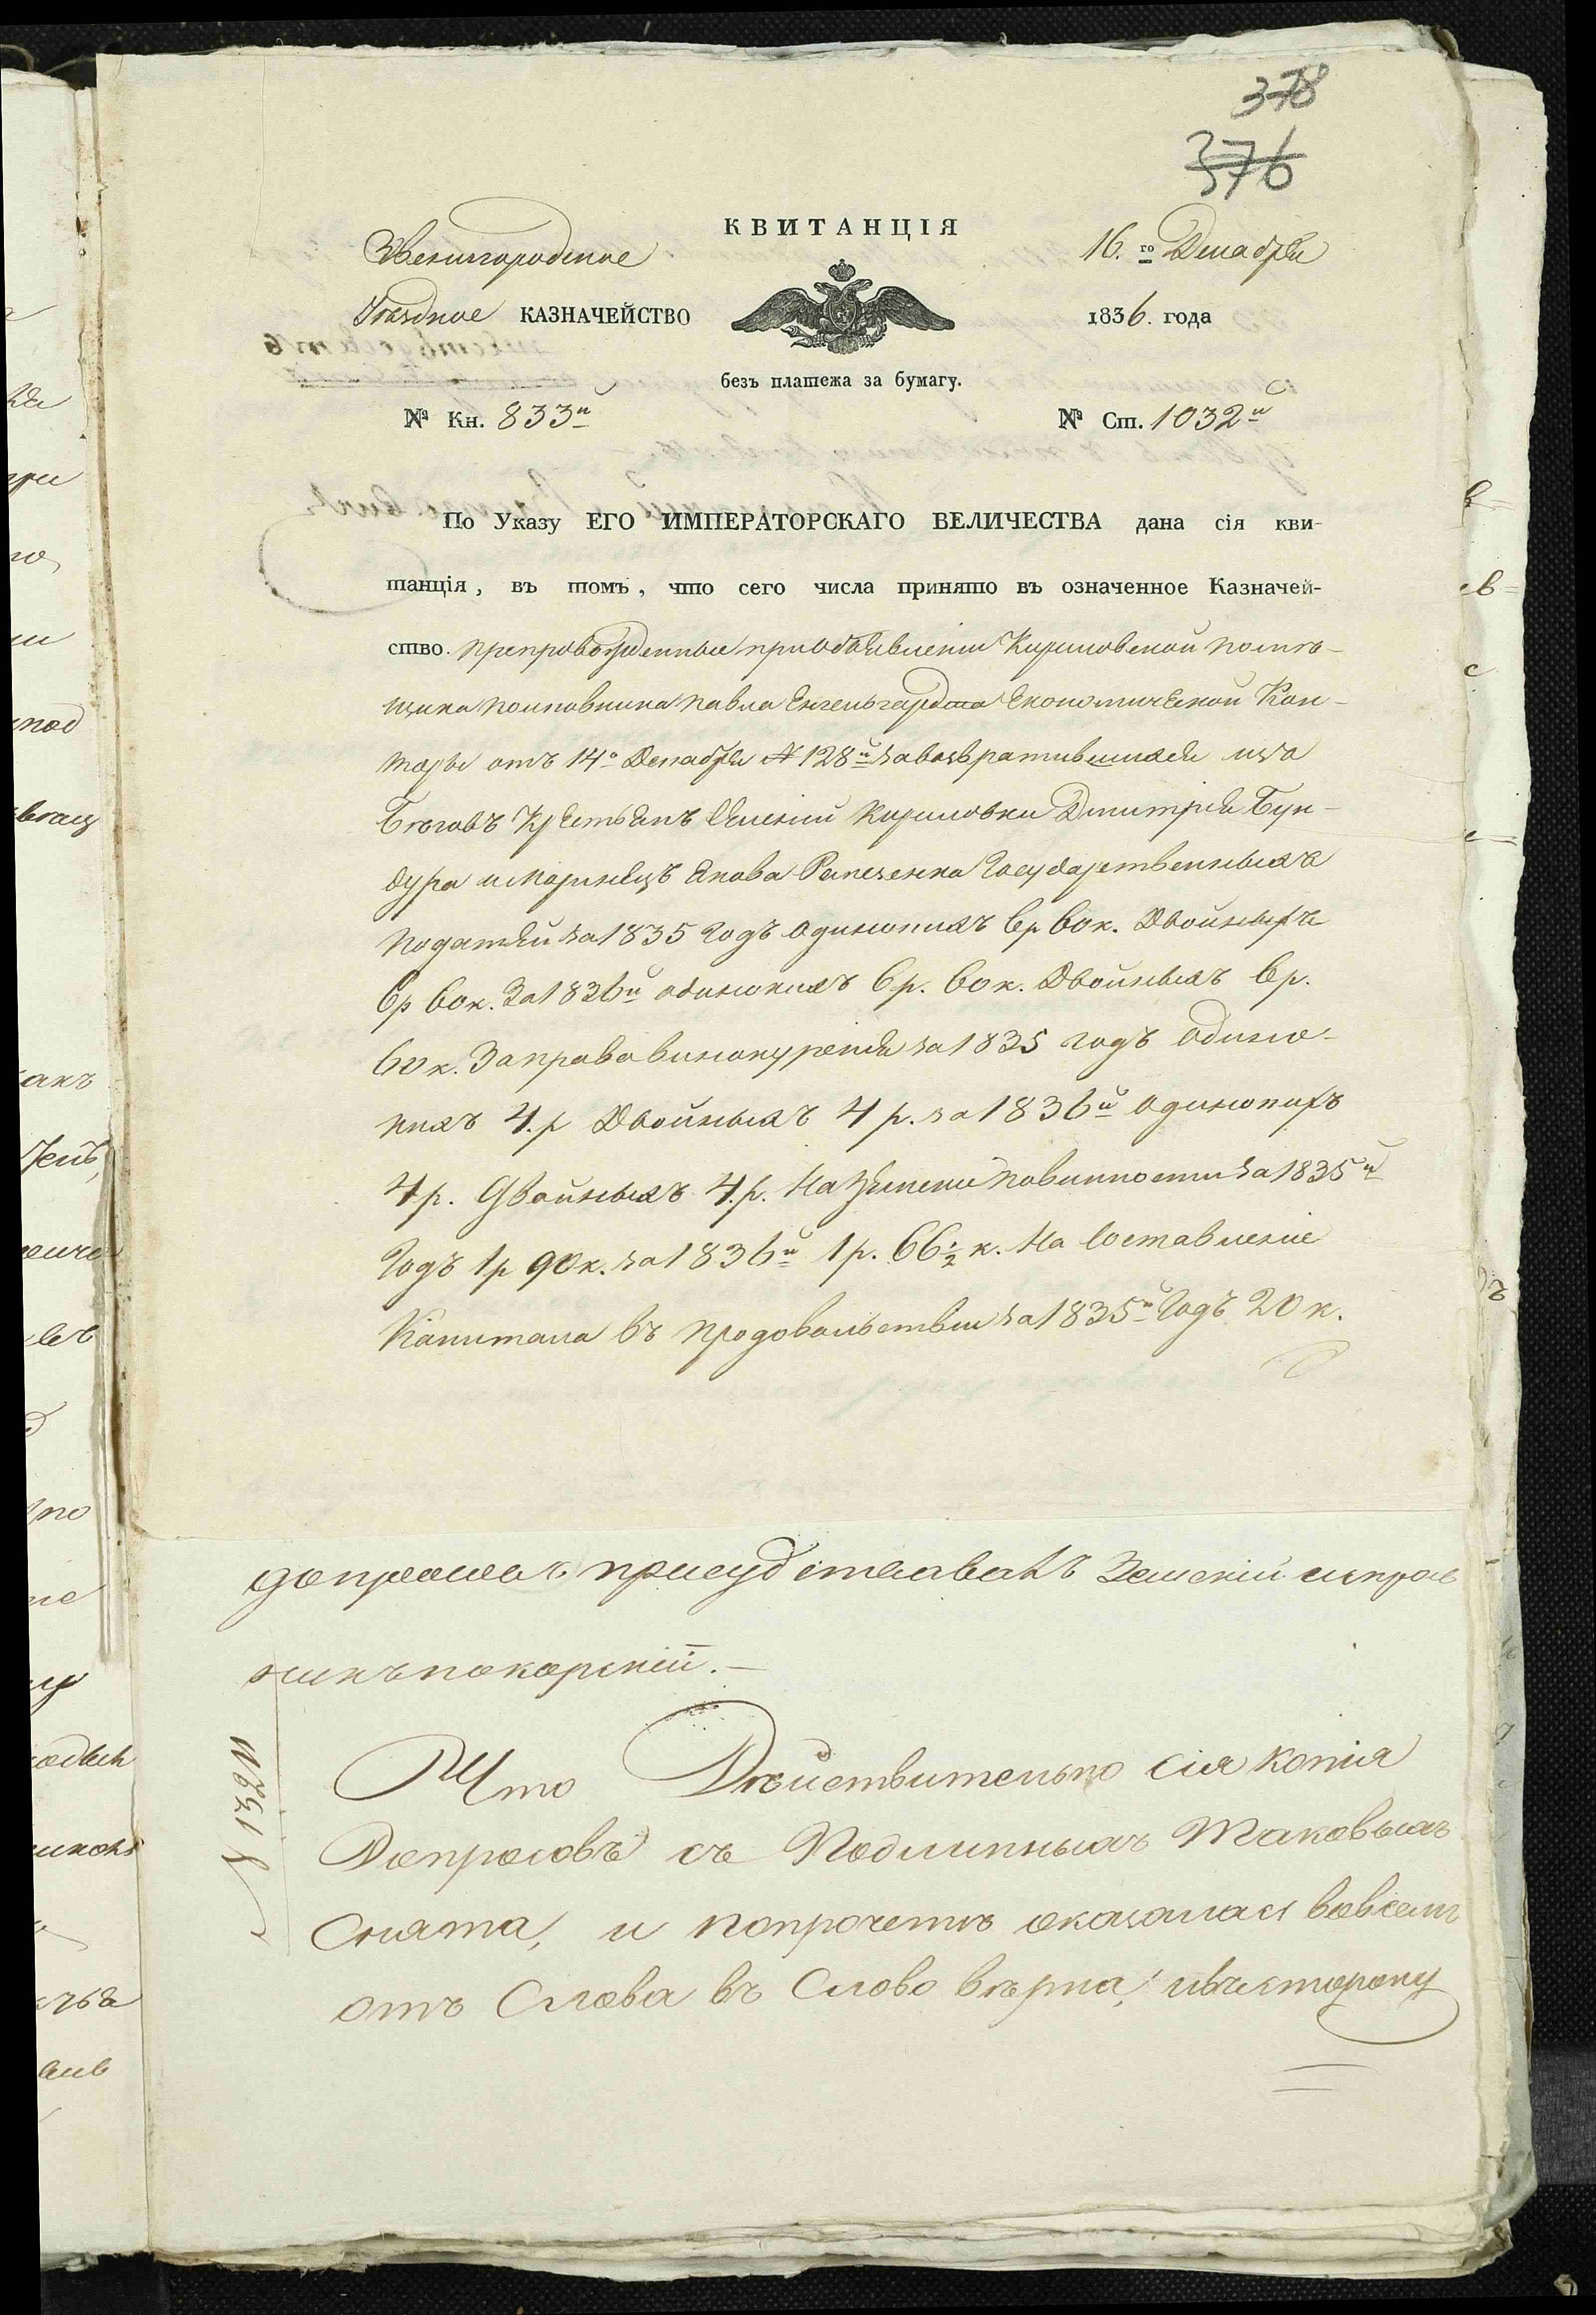 378
376
КВИТАНЦІЯ
Звенигородское
16.го Декабря
Уѣздное КАЗНАЧЕЙСТВО
1836. года
безъ платежа за бумагу.
№ Кн. 833й
№ Ст. 1032й
По Указу ЕГО ИМПЕРАТОРСКАГО ВЕЛИЧЕСТВА дана сія кви-
танція, въ томъ, что сего числа принято въ означенное Казначей-
ство. препровожденные приобъявленіи Кириловской помѣ-
щика полковника Павла Енгельгардта Економической Кон-
торы отъ 14о Декабря № 128й завозвратившихся изъ
Бѣговъ Крестьянъ Селенія Кириловки Дмитрія Бун-
дура и Моринецъ Якова государственныхъ
податей за 1835 годъ одинокихъ 6р 60к. Двойныхъ
6р 60к. За 1836й одинокихъ 6р. 60к. Двойныхъ 6р.
60к. За право винокуренія за 1835 годъ одино-
кихъ 4.р Двойныхъ 4р. за 1836й одинокихъ
4р. Двойныхъ 4.р. На Земскіи повинности за 1835й
Годъ 1р 90к. за 1836й 1р. 66½ к. На Составленіе
Капитала въ продовольствіи за 1835й Годъ 20 к.
допросѣ присудствовалъ Земскій исправ
никъ покорскій.-
№ 1321
Что Дѣйствительно сія копія
Допросовъ съ Подлинныхъ Таковыхъ
Снята, и попрочетѣ оказалась вовсемъ
отъ Слова въ Слово вѣрна,